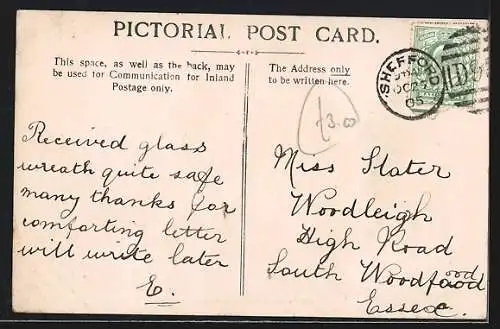 PICTORIAL POST CARD.
This space, as well as the back, may
be used for Communication for Inland
Postage only.
The Address only
to be written here.
SHEFFORD
OC 24
05
£3.00
Received glass
wreath quite safe
many thanks for
comforting letter
will write later
E.
Miss Slater
Woodleigh
High Road
South Woodford
Essex.